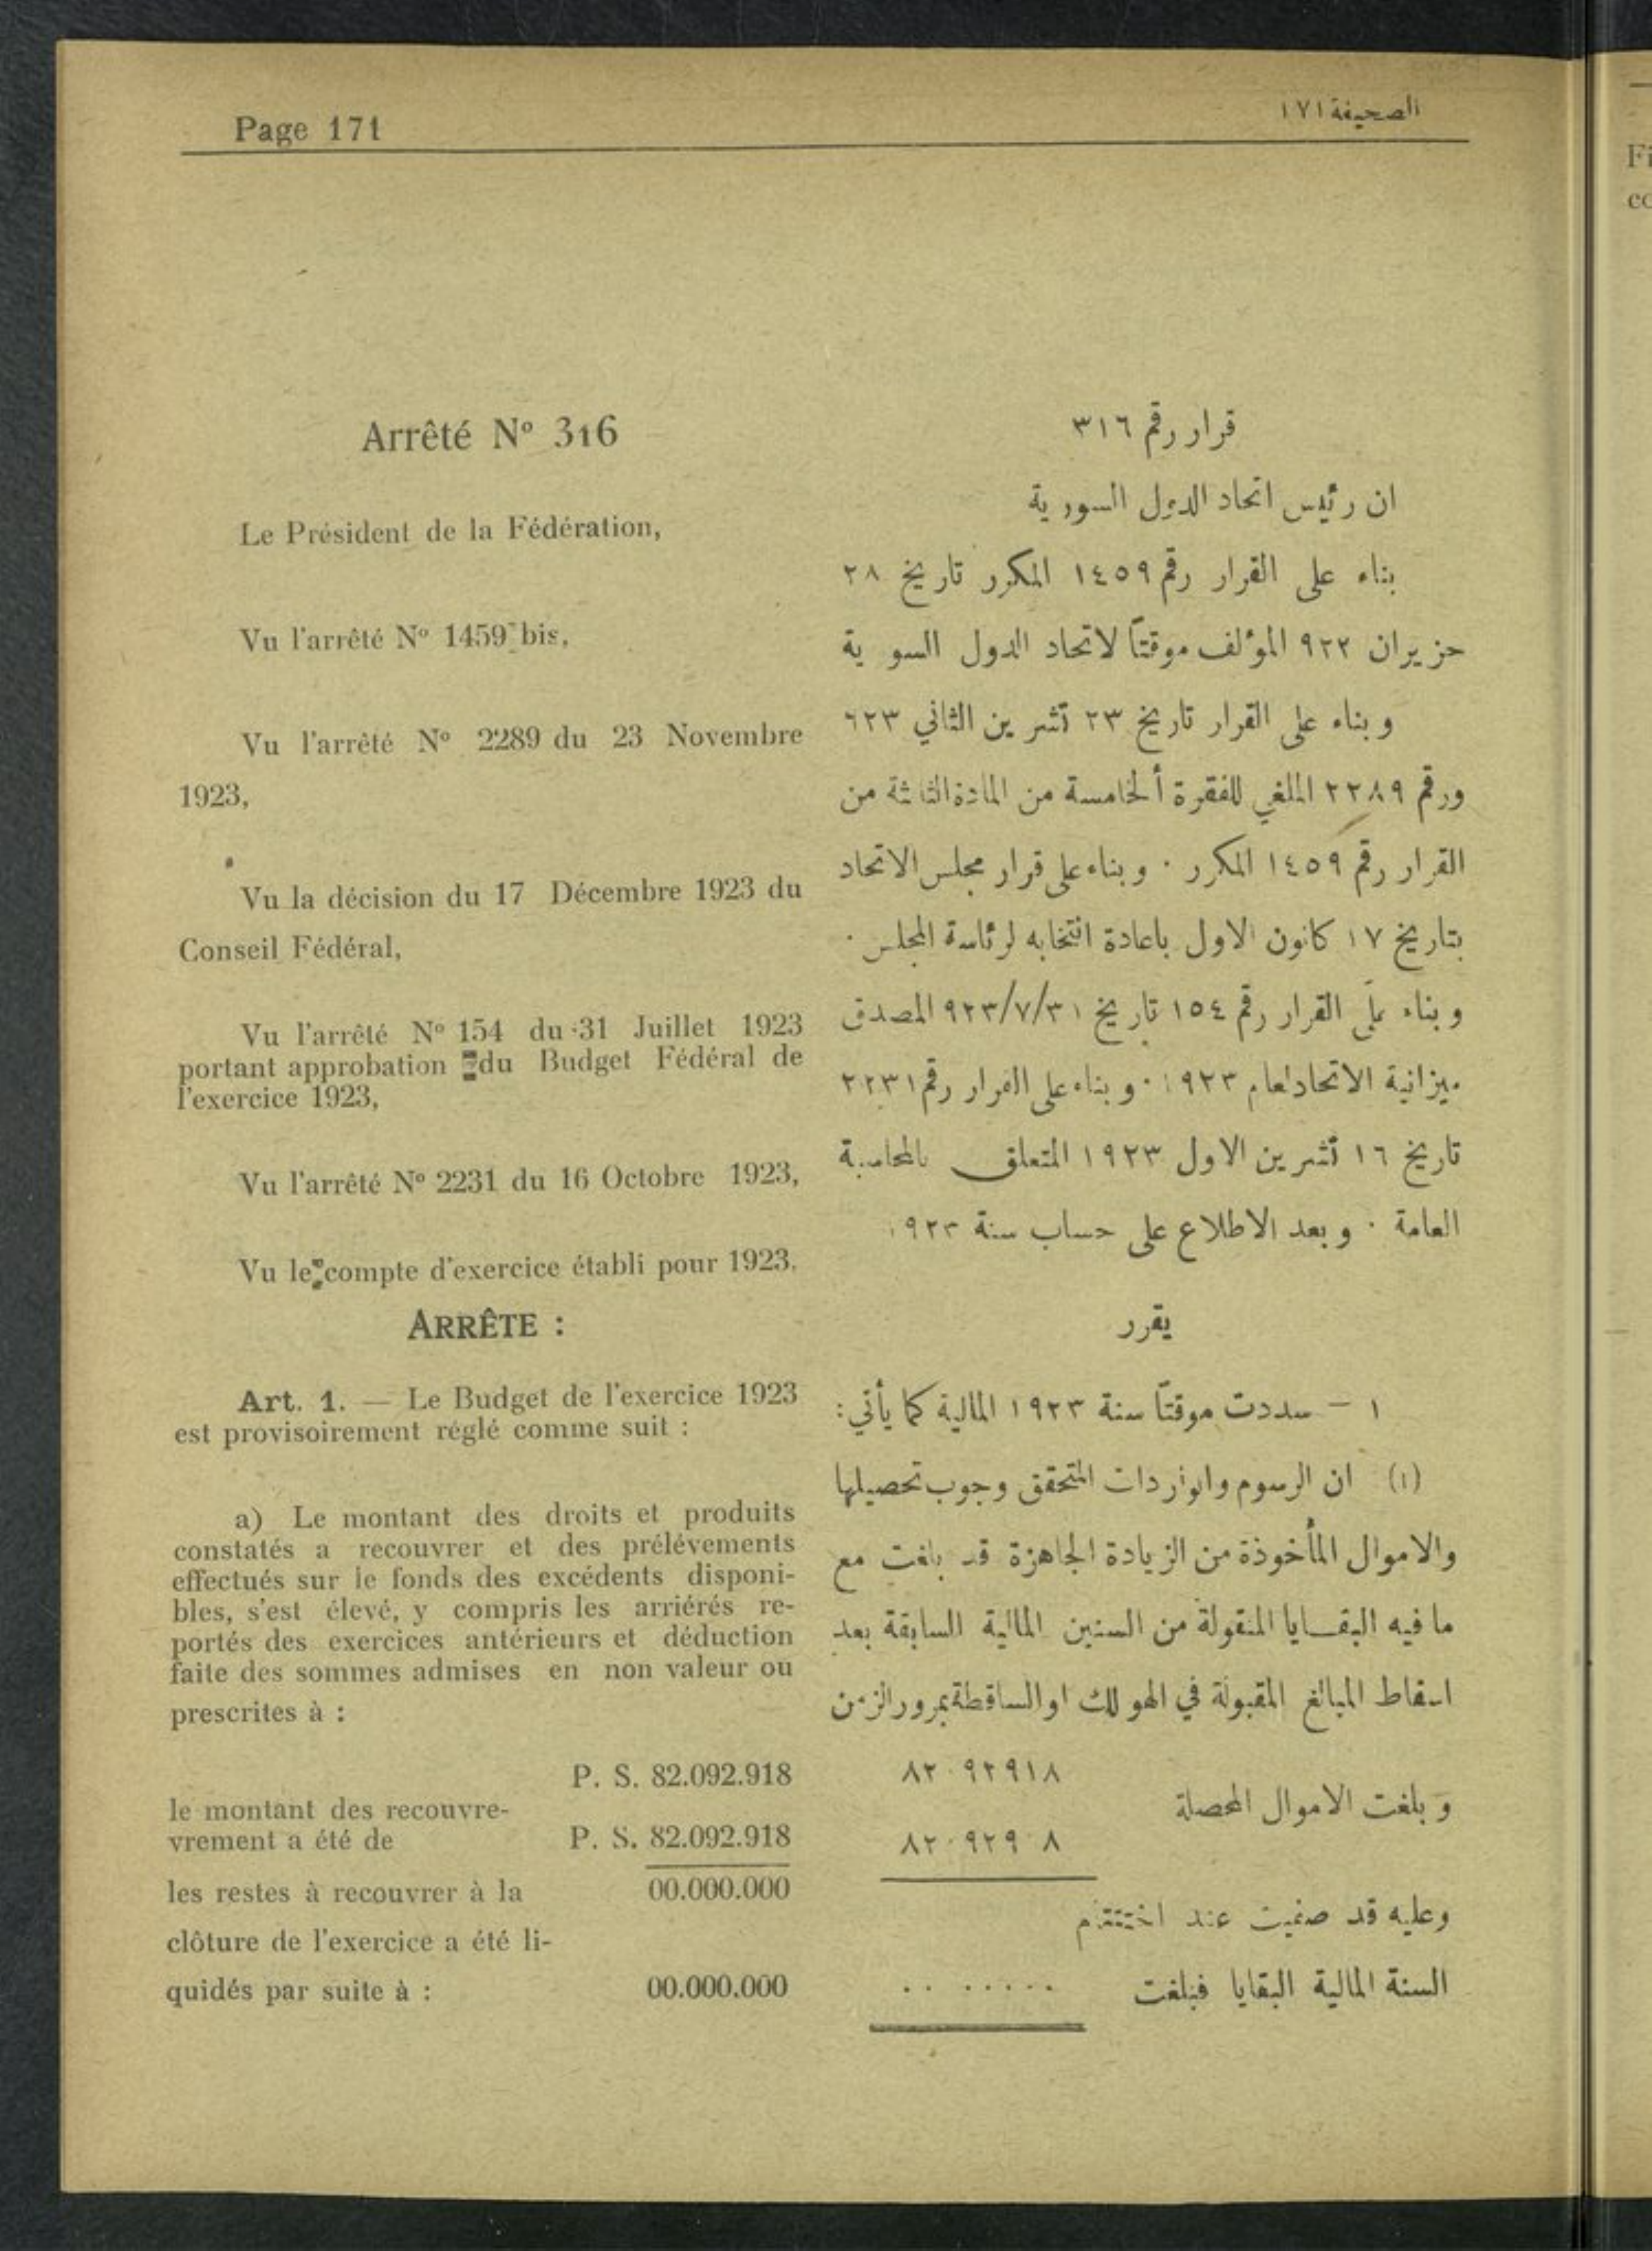 Page 171
الصحيفة ١٧١
Arrêté Nº 316
Le Président de la Fédération,
Vu l'arrêté Nº 1459 bis,
Vu l'arrêté Nº 2289 du 23 Novembre
1923,
Vu la décision du 17 Décembre 1923 du
Conseil Fédéral,
Vu l'arrêté Nº 154 du 31 Juillet 1923
portant approbation du Budget Fédéral de
l'exercice 1923,
Vu l'arrêté Nº 2231 du 16 Octobre 1923,
Vu le compte d'exercice établi pour 1923.
ARRÊTE :
Art. 1. — Le Budget de l'exercice 1923
est provisoirement réglé comme suit :
a) Le montant des droits et produits
constatés a recouvrer et des prélévements
effectués sur le fonds des excédents disponi-
bles, s'est élevé, y compris les arriérés re-
portés des exercices antérieurs et déduction
faite des sommes admises en non valeur ou
prescrites à :
P. S. 82.092.918
le montant des recouvre-
vrement a été de P. S. 82.092.918
les restes à recouvrer à la 00.000.000
clôture de l'exercice a été li-
quidés par suite à : 00.000.000
قرار رقم ٣١٦
ان رئيس اتحاد الدول السورية
بناء على القرار رقم ١٤٥٩ المكرر تاريخ ٢٨
حزيران ٩٢٢ المؤلف موقتاً لاتحاد الدول السو ية
وبناء على القرار تاريخ ٢٣ تشرين الثاني ٦٢٣
ورقم ٢٢٨٩ الملغي للفقرة ألخامسة من المادة الثالثة من
القرار رقم ١٤٥٩ المكرر · وبناء على قرار مجلس الاتحاد
بتاريخ ١٧ كانون الاول باعادة انتخابه لرئاسة المجلس ·
وبناء على القرار رقم ١٥٤ تاريخ ٩٢٣/٧/٣١ المصدق
ميزانية الاتحاد لعام ١٩٢٣ · وبناء على القرار رقم ٢٢٣١
تاريخ ١٦ تشرين الاول ١٩٢٣ المتعلق بالمحاسبة
العامة · وبعد الاطلاع على حساب سنة ١٩٢٣
يقرر
١ – سددت موقتاً سنة ١٩٢٣ المالية كما يأتي:
(١) ان الرسوم والواردات المتحقق وجوب تحصيلها
والاموال المأخوذة من الزيادة الجاهزة قد بلغت مع
ما فيه البقايا المنقولة من السنين المالية السابقة بعد
اسقاط المبالغ المقبولة في الهوالك او الساقطة بمرور الزمن
٨٢٠٩٢٩١٨
وبلغت الاموال المحصلة
٨٢٠٩٢٩٠٨
وعليه قد صفيت عند اختتام
السنة المالية البقايا فبلغت ٠٠ ٠٠٠٠٠٠